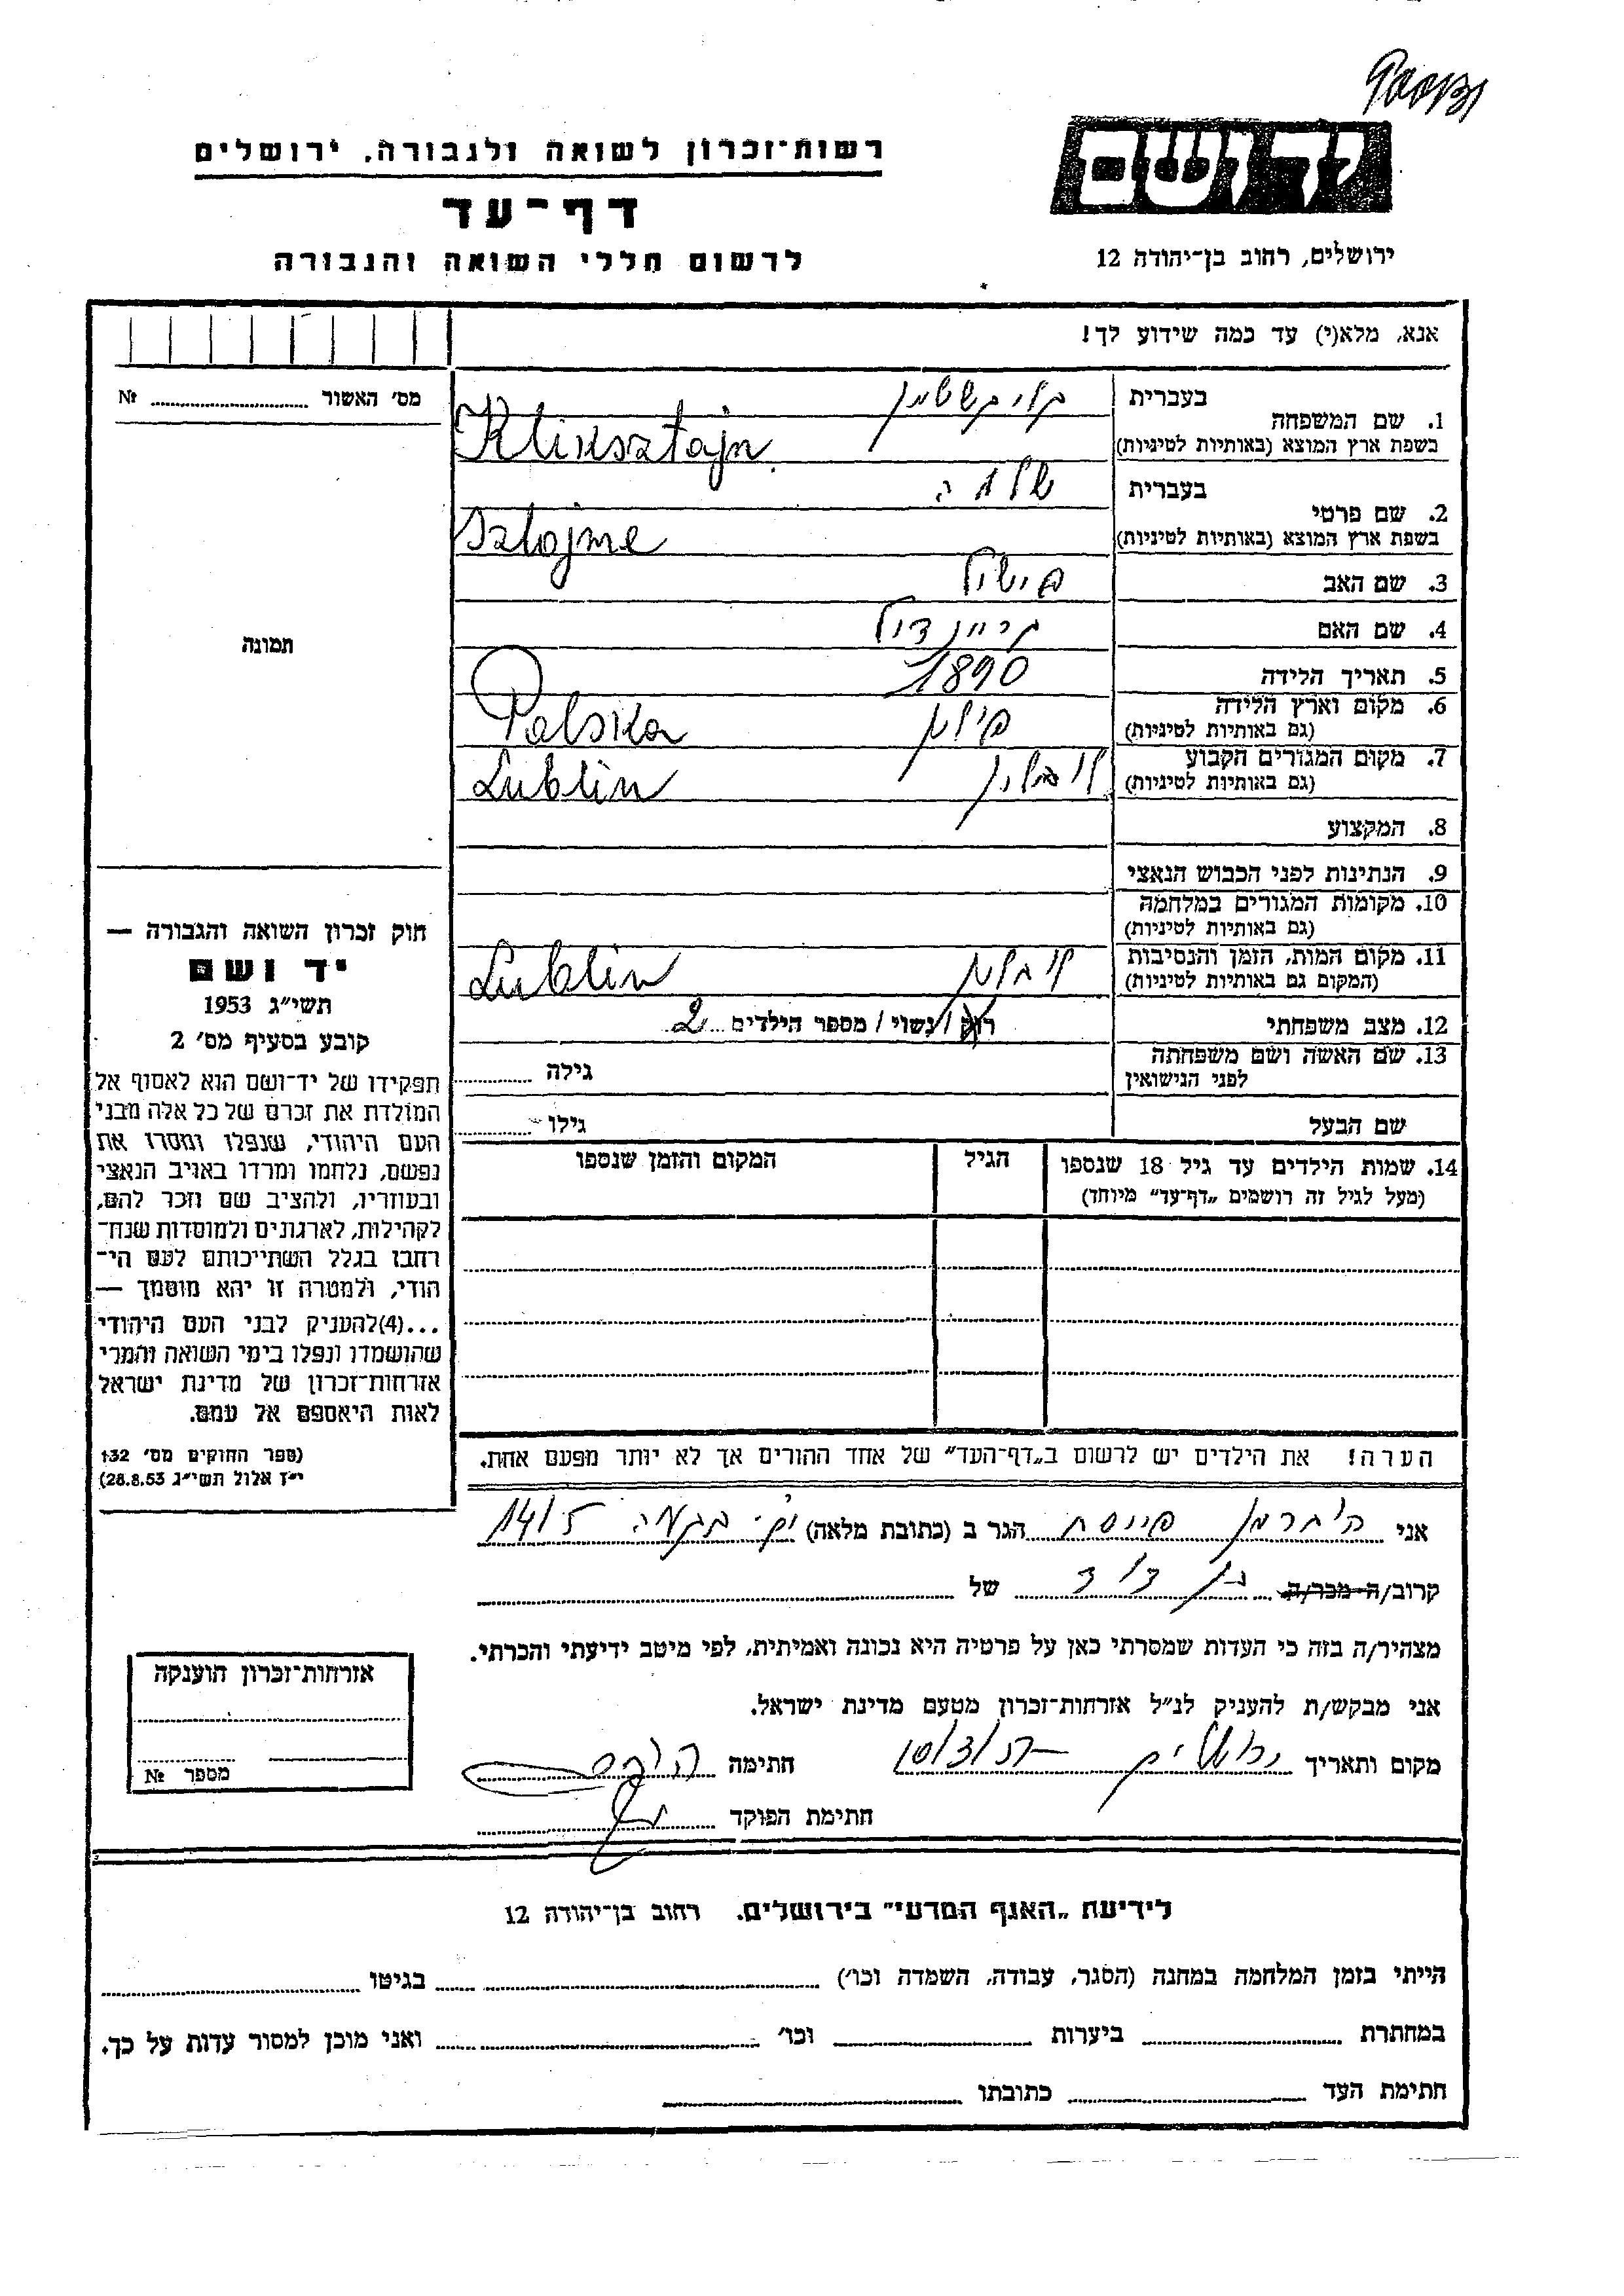 רשות־זכרון לשואה ולגבורה, ירושלים
דף־עד
לרשום חללי השואה והגבורה
ידושם
ירושלים, רחוב בן־יהודה 12
אנא, מלא(י) עד כמה שידוע לך!
מס׳ האשור № 
תמונה
1. שם המשפחה
בעברית
בשפת ארץ המוצא (באותיות לטיניות)
קליקשטיין
Kliksztajn
2. שם פרטי
בעברית שלמה
בשפת ארץ המוצא (באותיות לטיניות)
Szlojme
3. שם האב פישל
4. שם האם
5. תאריך הלידה 1890
6. מקום וארץ הלידה פולין
(גם באותיות לטיניות) Polska
7. מקום המגורים הקבוע לובלין
(גם באותיות לטיניות) Lublin
8. המקצוע
9. הנתינות לפני הכבוש הנאצי
10. מקומות המגורים במלחמה
(גם באותיות לטיניות)
11. מקום המות, הזמן והנסיבות לובלין
(המקום גם באותיות לטיניות) Lublin
12. מצב משפחתי רווק / נשוי / מספר הילדים 2
13. שם האשה ושם משפחתה
לפני הנישואין גילה
שם הבעל גילו
14. שמות הילדים עד גיל 18 שנספו הגיל המקום והזמן שנספו
(מעל לגיל זה רושמים „דף־עד" מיוחד)
הערה! את הילדים יש לרשום ב„דף־העד" של אחד ההורים אך לא יותר מפעם אחת.
חוק זכרון השואה והגבורה —
יד ושם
תשי״ג 1953
קובע בסעיף מס׳ 2
תפקידו של יד־ושם הוא לאסוף אל
המולדת את זכרם של כל אלה מבני
העם היהודי, שנפלו ומסרו את
נפשם, נלחמו ומרדו באויב הנאצי
ובעוזריו, ולהציב שם וזכר להם,
לקהילות, לארגונים ולמוסדות שנח־
רחבו בגלל השתייכותם לעם הי־
הודי, ולמטרה זו יהא מוסמך —
...(4)להעניק לבני העם היהודי
שהושמדו ונפלו בימי השואה והמרי
אזרחות־זכרון של מדינת ישראל
לאות היאספם אל עמם.
(ספר החוקים מס׳ 132
י״ז אלול תשי״ג 28.8.53)
אני פינסת הגר ב (כתובת מלאה) 14/5
קרוב/ה מכר/ה בן דוד של
מצהיר/ה בזה כי העדות שמסרתי כאן על פרטיה היא נכונה ואמיתית, לפי מיטב ידיעתי והכרתי.
אני מבקש/ת להעניק לנ״ל אזרחות־זכרון מטעם מדינת ישראל.
מקום ותאריך ירושלים חתימה
חתימת הפוקד
אזרחות־זכרון הוענקה
מספר №
לידיעת „האגף המדעי" בירושלים. רחוב בן־יהודה 12
הייתי בזמן המלחמה במחנה (הסגר, עבודה, השמדה וכו׳) בגיטו
במחתרת ביערות וכו׳ ואני מוכן למסור עדות על כך.
חתימת העד כתובתו